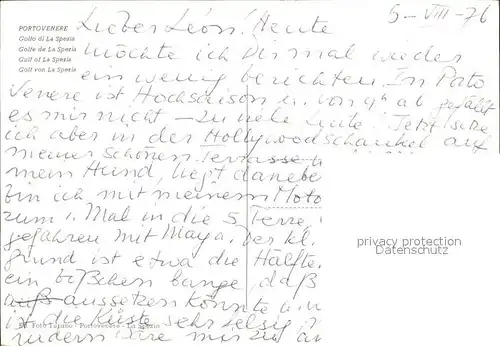 5-VIII-76
PORTOVENERE
Golfo di La Spezia
Golfe de La Spezia
Gulf of La Spezia
Golf von La Spezia
Lieber Léon! Heute
möchte ich Dir mal wieder
ein wenig berichten. In Porto
Venere ist Hochsaison u. von 9h ab gefällt
es mir nicht - zu viele Leute! Jetzt sitze
ich aber in der Hollywoodschaukel auf
meiner schönen Terrasse u
mein Hund, liegt danebe
bin ich mit meinem Moto
zum 1. Mal in die 5 Terre
gefahren mit Maya. Der kl.
grund ist etwa die Hälfte.
ein bißchen bange, daß
aussetzen könnte u.
ist die Küste sehr felsig,
rudern wäre mir zu an
Foto - Portovenere - La Spezia
privacy protection
Datenschutz